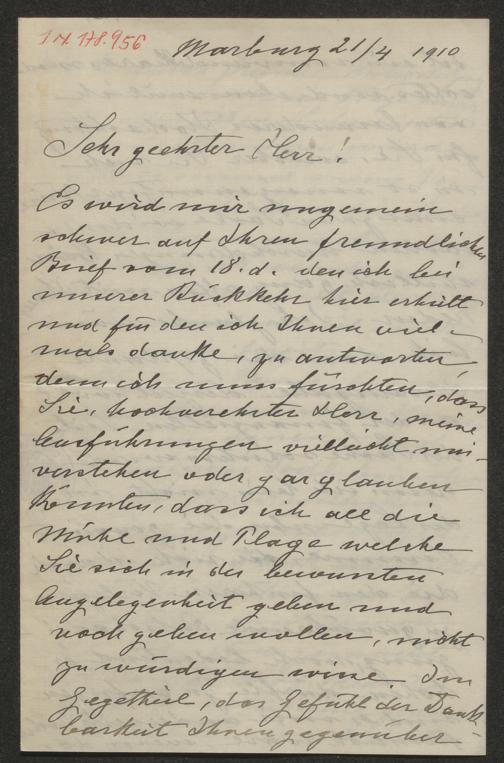 I.N. 178.956
Marburg 21/4 1910
Sehr geehrter Herr!
Es wird mir ungemein
schwer auf Ihren freundlichen
Brief vom 18. d. den ich bei
unserer Rückkehr hier erhielt
und für den ich Ihnen viel-
mals danke, zu antworten,
denn ich muss fürchten, dass
Sie, hochverehrter Herr, meine
Ausführungen vielleicht miss-
verstehen oder gar glauben
könnten, dass ich all die
Mühe und Plage welche
Sie sich in der bewussten
Angelegenheit geben und
noch geben wollen, nicht
zu würdigen wisse. Im
Gegetheil, das Gefühl der Dank-
barkeit Ihnen gegenüber